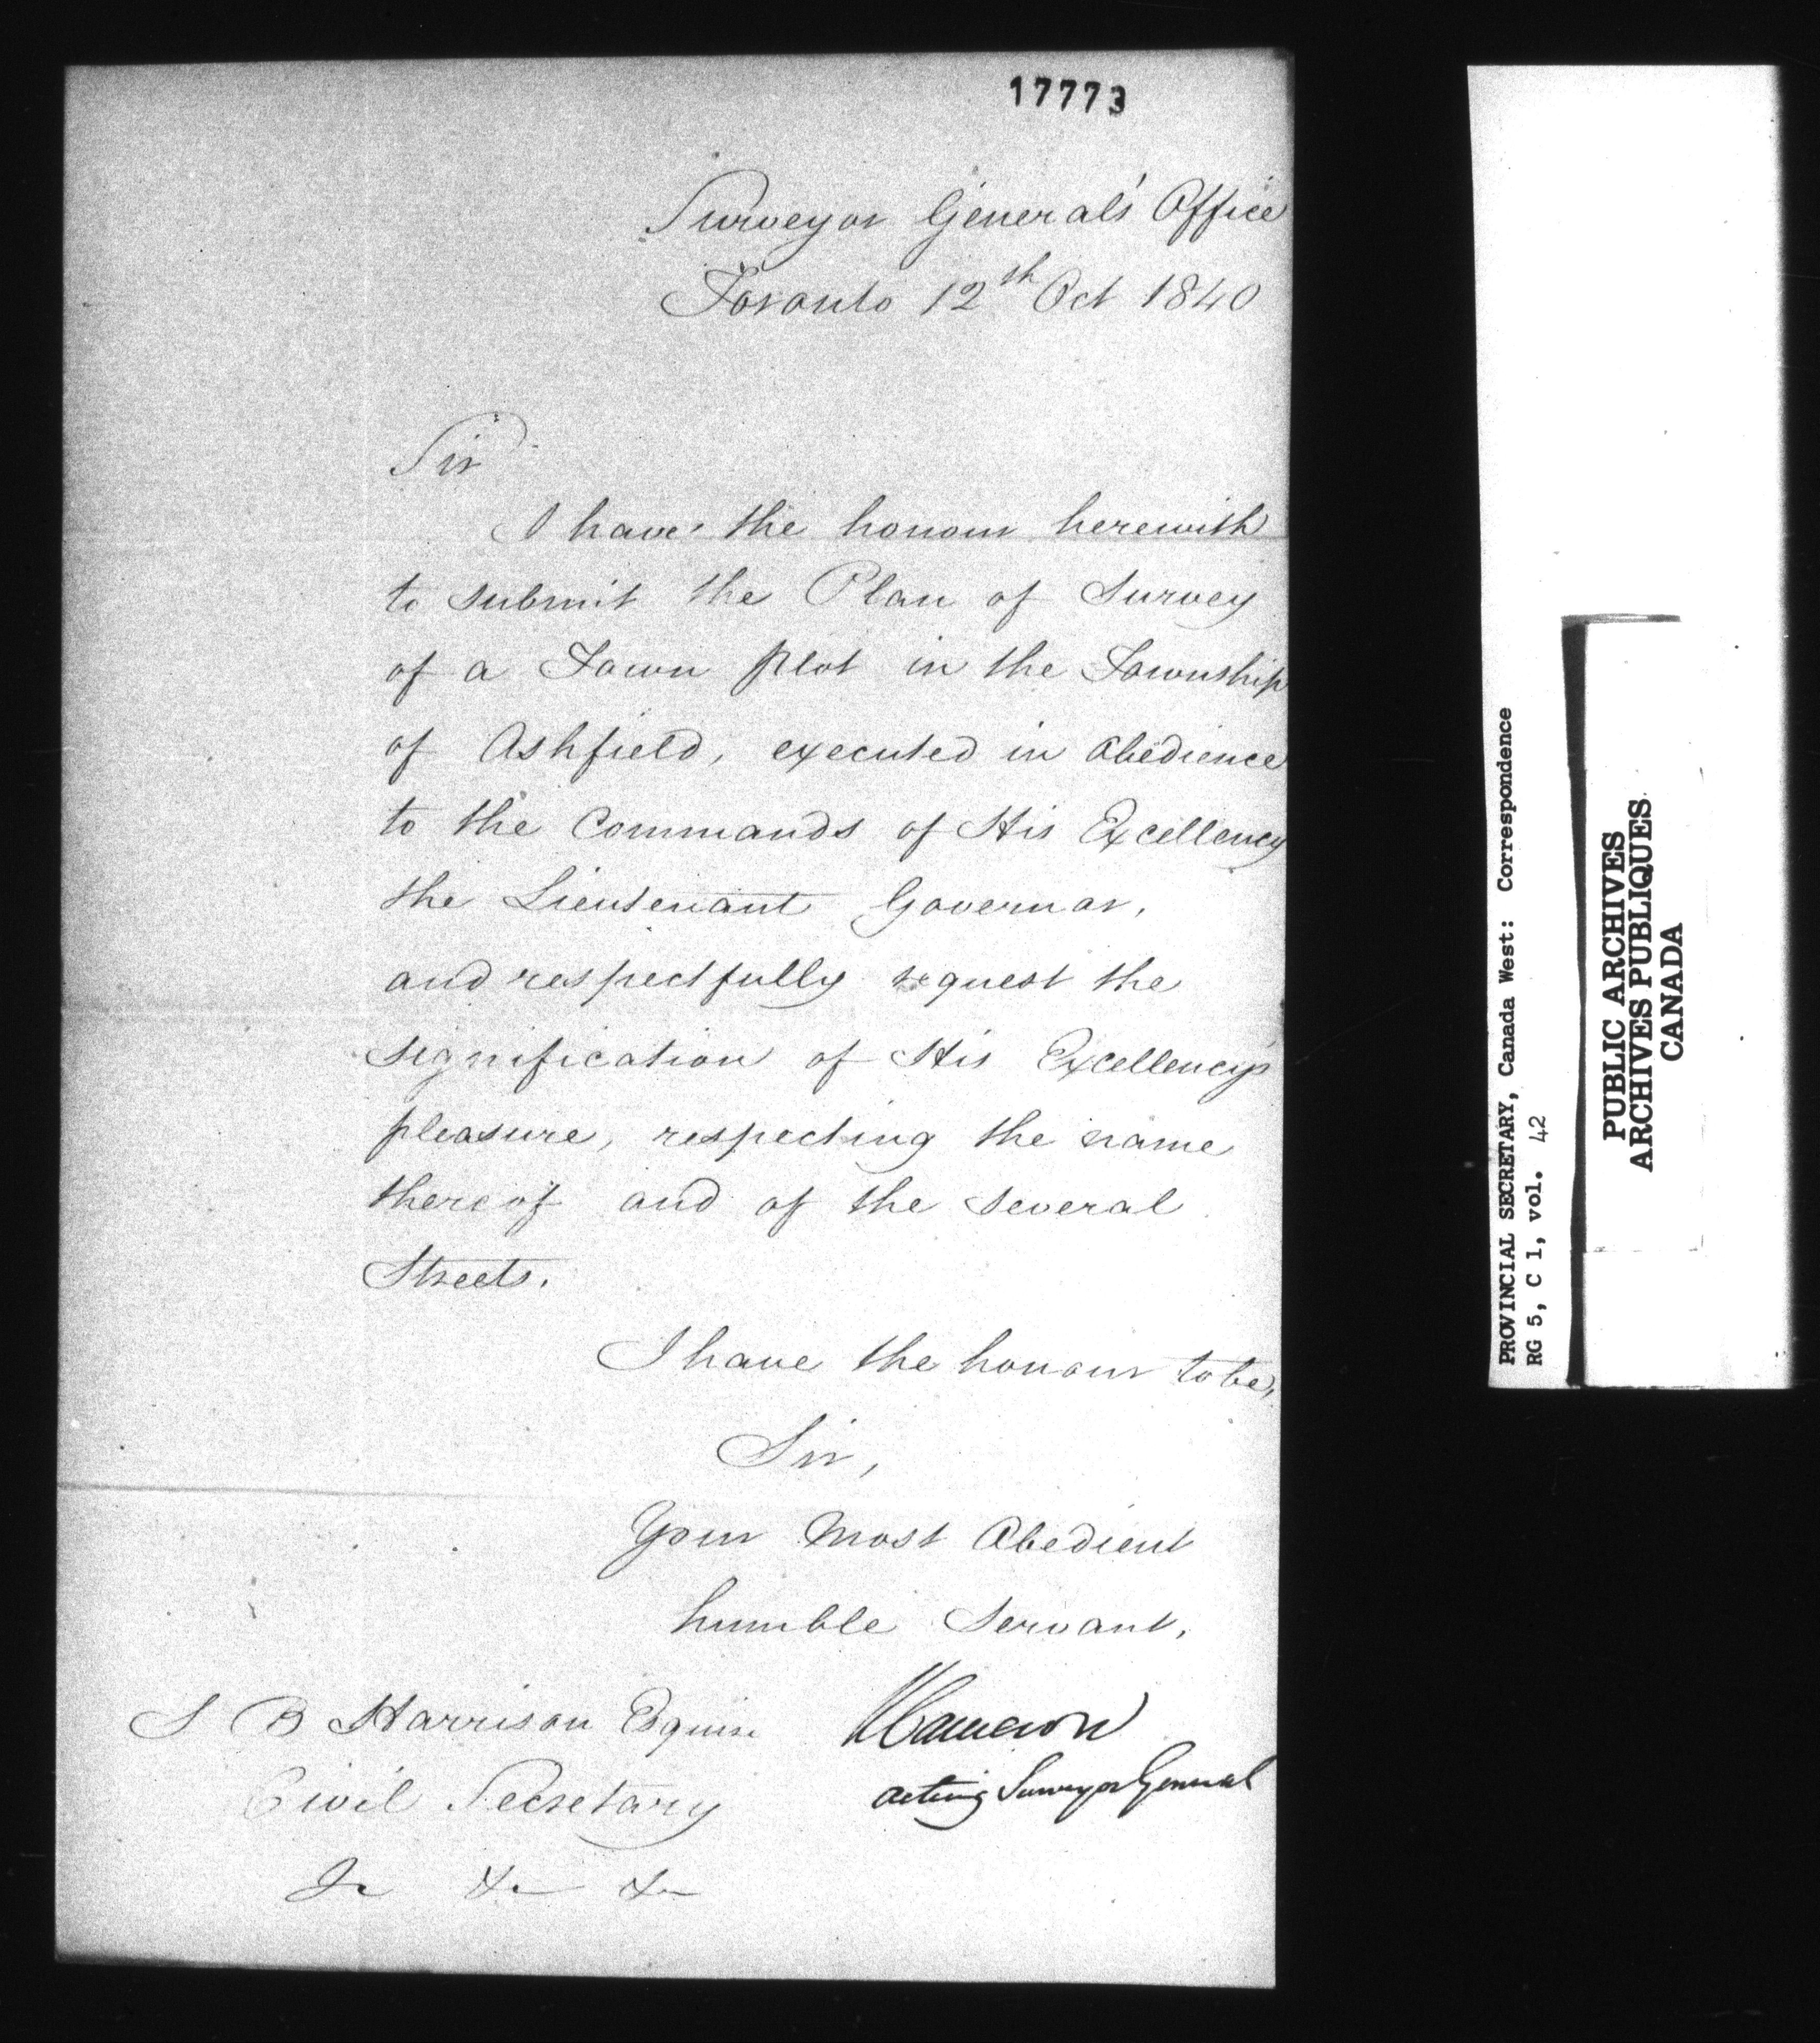 17773
Surveyor General's Office
Toronto 12th Oct 1840
Sir
I have the honour herewith
to submit the Plan of Survey
of a Town plot in the Township
of Ashfield, executed in obedience
to the Commands of His Excellency
the Lieutenant Governor,
and respectfully request the
signification of His Excellency's
pleasure, respecting the name
thereof and of the several
Streets.
I have the honour to be,
Sir,
Your Most Obedient
humble Servant,
S B Harrison Esquire
Civil Secretary
&c &c &c
Cameron
acting Surveyor General
PROVINCIAL SECRETARY, Canada West: Correspondence
RG 5, C 1, vol. 42
PUBLIC ARCHIVES
ARCHIVES PUBLIQUES
CANADA